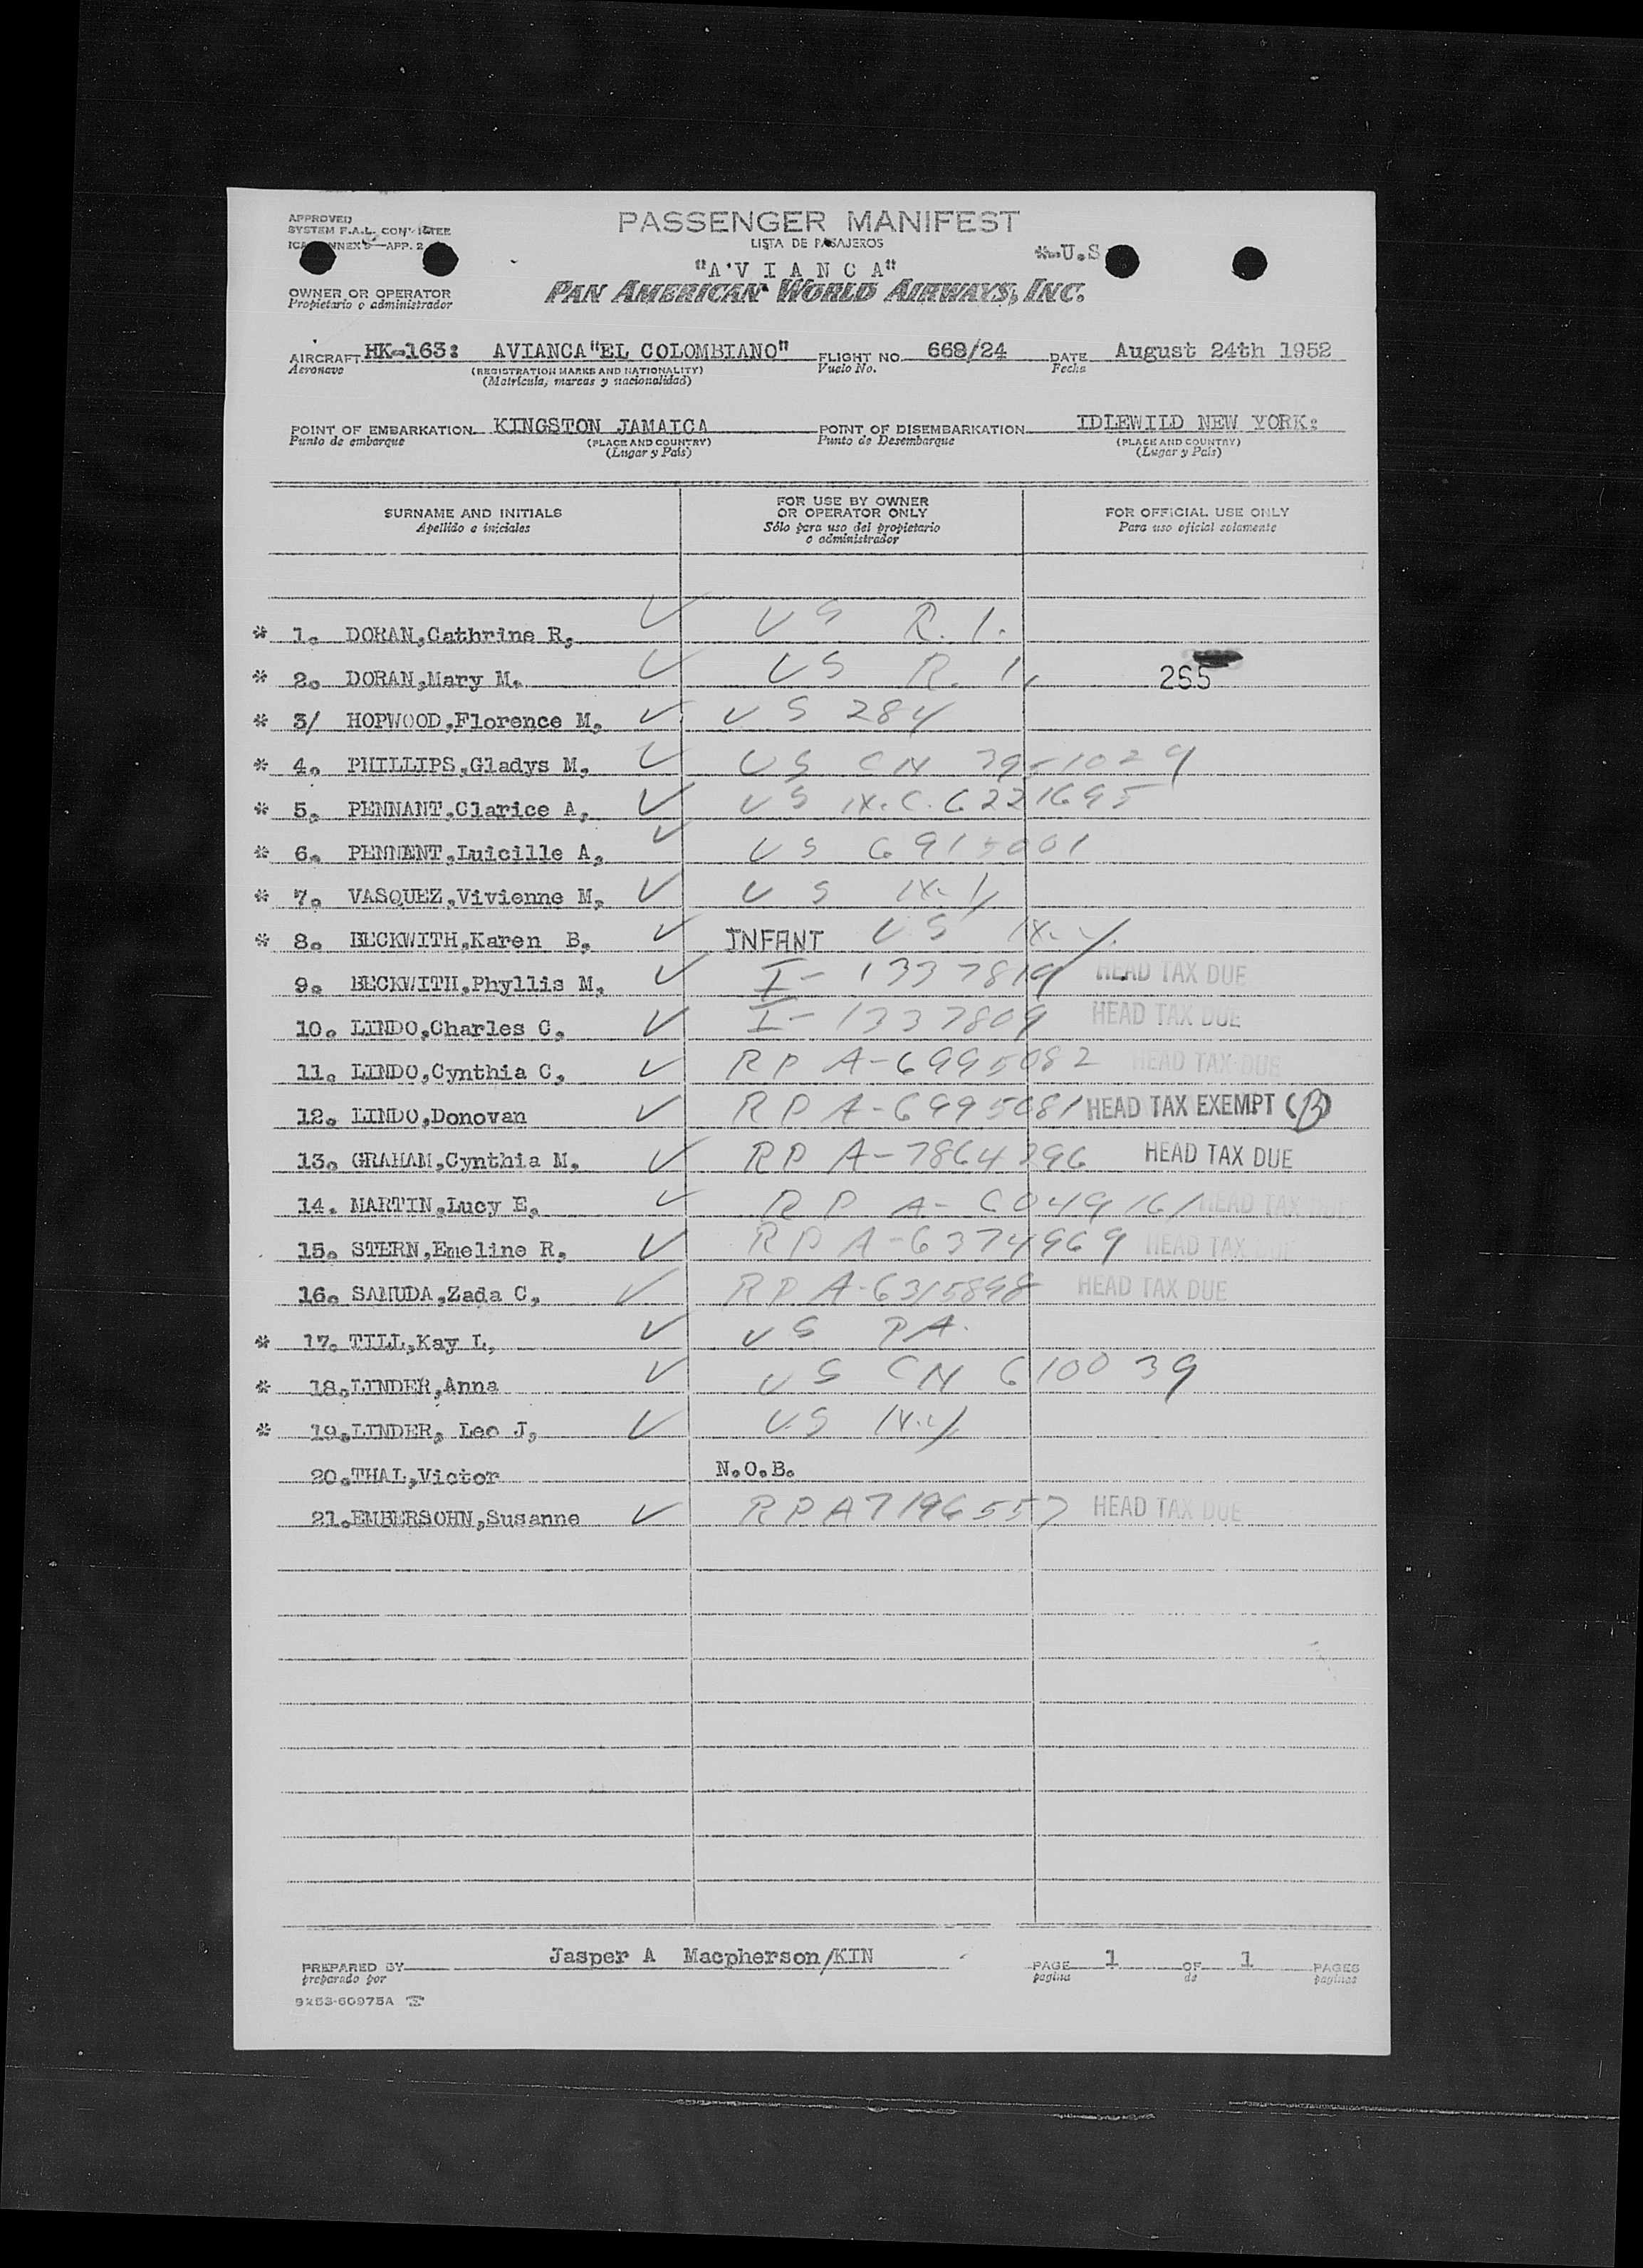 APPROVED
SYSTEM F.A.L. COMMITTEE
ICAO ANNEX 9—APP. 2
PASSENGER MANIFEST
LISTA DE PASAJEROS
*-U.S
"A V I A N C A"
OWNER OR OPERATOR
Propietario o administrador
PAN AMERICAN WORLD AIRWAYS, INC.
AIRCRAFT HK-163: AVIANCA"EL COLOMBIANO" FLIGHT NO. 668/24 DATE August 24th 1952
Aeronave (REGISTRATION MARKS AND NATIONALITY) Vuelo No. Fecha
(Matrícula, marcas y nacionalidad)
POINT OF EMBARKATION KINGSTON JAMAICA POINT OF DISEMBARKATION IDLEWILD NEW YORK:
Punto de embarque (PLACE AND COUNTRY) Punto de Desembarque (PLACE AND COUNTRY)
(Lugar y País) (Lugar y País)
SURNAME AND INITIALS
Apellido e iniciales
FOR USE BY OWNER
OR OPERATOR ONLY
Sólo para uso del propietario
o administrador
FOR OFFICIAL USE ONLY
Para uso oficial solamente
* 1. DORAN,Cathrine R, US R.I.
* 2. DORAN,Mary M. US R.I. 265
* 3/ HOPWOOD,Florence M, US 284
* 4. PHILLIPS,Gladys M, US CN 39-1029
* 5, PENNANT,Clarice A, US N.C. 6221695
* 6. PENNENT,Luicille A, US 6915001
* 7. VASQUEZ,Vivienne M, US N.Y.
* 8. BECKWITH,Karen B, INFANT US N.Y.
9. BECKWITH,Phyllis M, I-1337819 HEAD TAX DUE
10. LINDO,Charles C, I-1337809 HEAD TAX DUE
11. LINDO,Cynthia C, RP A-6995082 HEAD TAX DUE
12. LINDO,Donovan RP A-6995081 HEAD TAX EXEMPT (B)
13. GRAHAM,Cynthia N, RP A-7864296 HEAD TAX DUE
14. MARTIN,Lucy E, RP A-6049161 HEAD TAX DUE
15. STERN,Emeline R, RP A-6374969 HEAD TAX DUE
16. SAMUDA,Zada C, RP A-6315898 HEAD TAX DUE
* 17. TILL,Kay L, US PA.
* 18.LINDER,Anna US CN 6100 39
* 19.LINDER, Leo J, US N.Y.
20.THAL,Victor N.O.B.
21.EMBERSOHN,Susanne RP A7196557 HEAD TAX DUE
PREPARED BY Jasper A Macpherson/KIN PAGE 1 OF 1 PAGES
preparado por pagina de paginas
9253-60975A